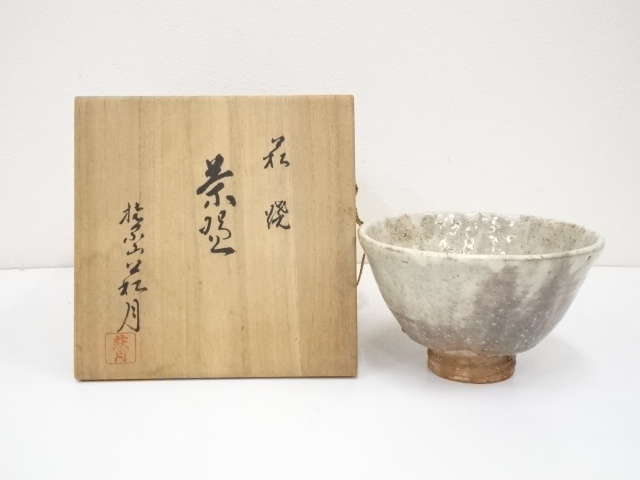 萩焼
茶碗
萩月
萩月